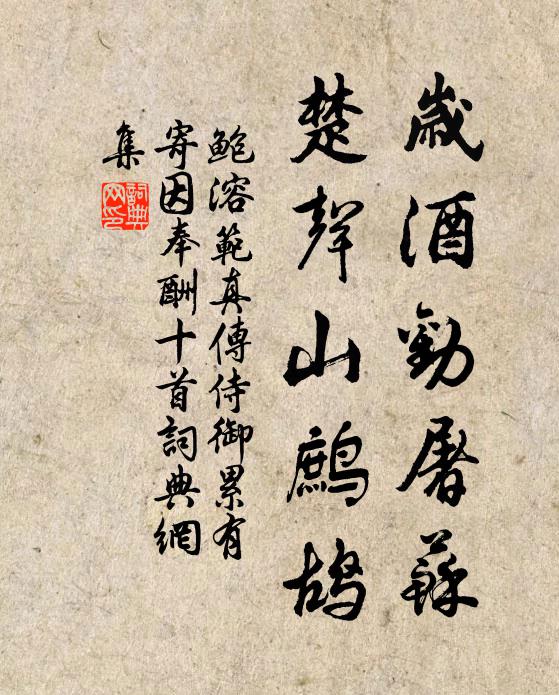 歲酒勸屠蘇
楚聲山鷓鴣
鮑溶範真傳侍御累有
寄因奉酬十首詞典網
集
詞典
网印